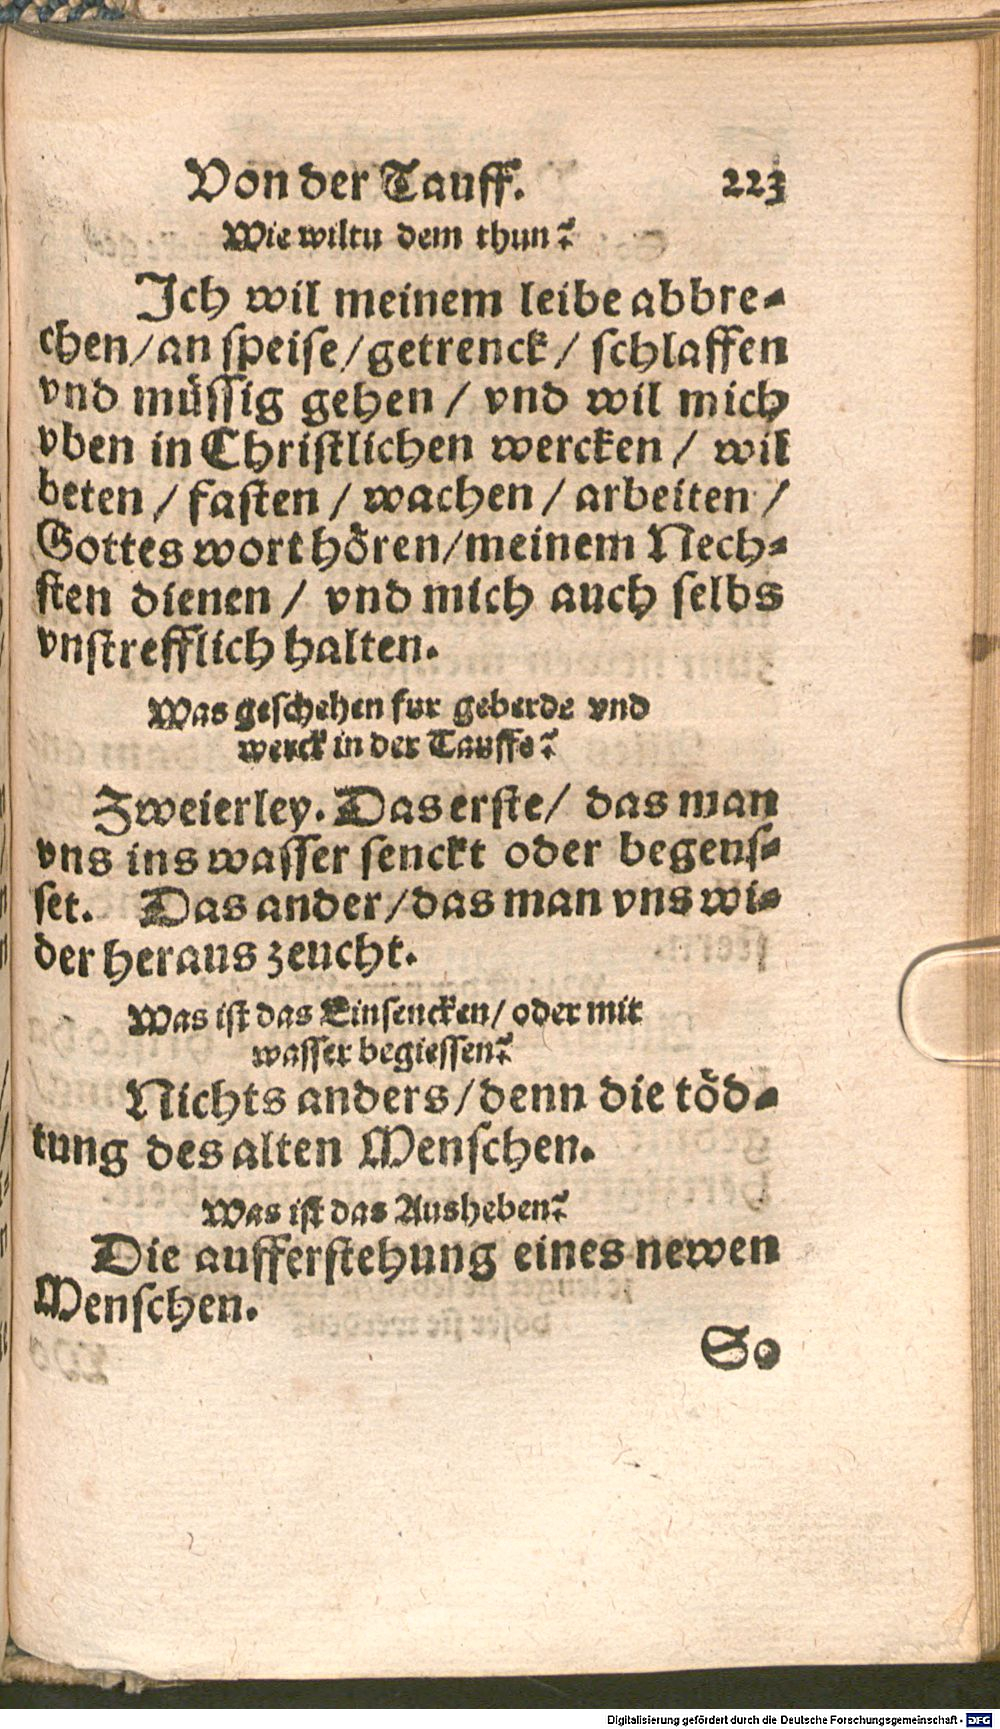 Von der Tauff. 223
Wie wiltu dem thun?
Ich wil meinem leibe abbre-
chen/an speise/getrenck/ schlaffen
vnd müssig gehen / vnd wil mich
vben in Christlichen wercken / wil
beten / fasten / wachen / arbeiten /
Gottes wort hören/meinem Nech-
sten dienen / vnd mich auch selbs
vnstrefflich halten.
Was geschehen fur geberde vnd
werck in der Tauffe?
Zweierley. Das erste/ das man
vns ins wasser senckt oder begeus-
set. Das ander/das man vns wi-
der heraus zeucht.
Was ist das Einsencken/ oder mit
wasser begiessen?
Nichts anders/denn die töd-
tung des alten Menschen.
Was ist das Ausheben?
Die aufferstehung eines newen
Menschen.
So
Digitalisierung gefördert durch die Deutsche Forschungsgemeinschaft - DFG